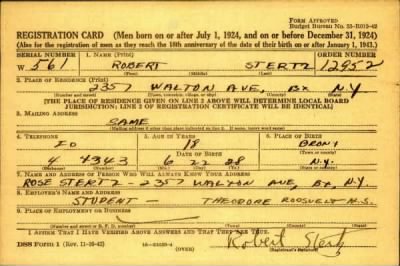 FORM APPROVED
Budget Bureau No. 33-R012-42
REGISTRATION CARD (Men born on or after July 1, 1924, and on or before December 31, 1924)
(Also for the registration of men as they reach the 18th anniversary of the date of their birth on or after January 1, 1943.)
SERIAL NUMBER 1. NAME (Print) ORDER NUMBER
W 561 ROBERT STERTZ 12952
(First) (Middle) (Last)
2. PLACE OF RESIDENCE (Print)
2357 WALTON AVE, BX N.Y
(Number and street) (Town, township, village, or city) (County) (State)
[THE PLACE OF RESIDENCE GIVEN ON LINE 2 ABOVE WILL DETERMINE LOCAL BOARD
JURISDICTION; LINE 2 OF REGISTRATION CERTIFICATE WILL BE IDENTICAL]
3. MAILING ADDRESS
SAME
(Mailing address if other than place indicated on line 2. If same, insert word same)
4. TELEPHONE 5. AGE IN YEARS 6. PLACE OF BIRTH
18
DATE OF BIRTH
4 4343 6 22 N.Y.
7. NAME AND ADDRESS OF PERSON WHO WILL ALWAYS KNOW YOUR ADDRESS
ROSE STERTZ - 2357 WALTON AVE, BX, N.Y.
8. EMPLOYER'S NAME AND ADDRESS
STUDENT - THEODORE ROOSVELT H.S.
9. PLACE OF EMPLOYMENT OR BUSINESS
(Number and street or R. F. D. number) (Town) (County) (State)
I AFFIRM THAT I HAVE VERIFIED ABOVE ANSWERS AND THAT THEY ARE TRUE.
DSS Form 1 (Rev. 11-16-42) (OVER) Robert Stertz
(Registrant's signature)